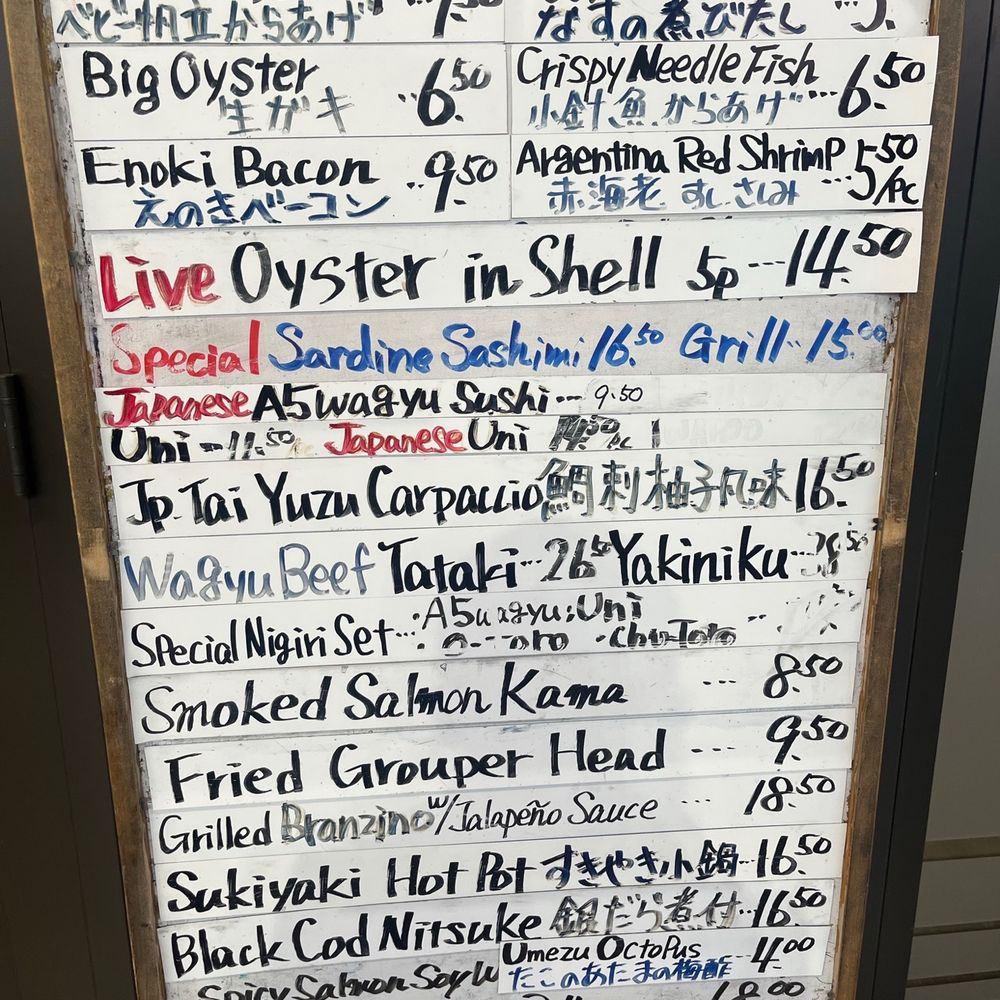 ベビー帆立からあげ
なすの煮びたし
Big Oyster ..6.50
生ガキ
Crispy Needle Fish ...6.50
小針魚からあげ
Enoki Bacon ..9.50
えのきベーコン
Argentina Red Shrimp ...5.50/pc
赤海老 すし さしみ
Live Oyster in Shell 5p ---14.50
Special Sardine Sashimi 16.50 Grill..15.00
Japanese A5 wagyu Sushi --- 9.50
Uni --11.50 Japanese Uni
Jp. Tai Yuzu Carpaccio 鯛刺柚子風味 16.50
Wagyu Beef Tataki ...26.50 Yakiniku
Special Nigiri Set ... ・A5 wagyu ・Uni
・chu-Toro
Smoked Salmon Kama --- 8.50
Fried Grouper Head ---- 9.50
Grilled Branzino w/Jalapeño Sauce --- 18.50
Sukiyaki Hot Pot すきやき小鍋 --16.50
Black Cod Nitsuke 銀だら煮付 --16.50
Umezu Octopus ---4.00
たこのあたまの梅酢
Spicy Salmon Soy
18.00